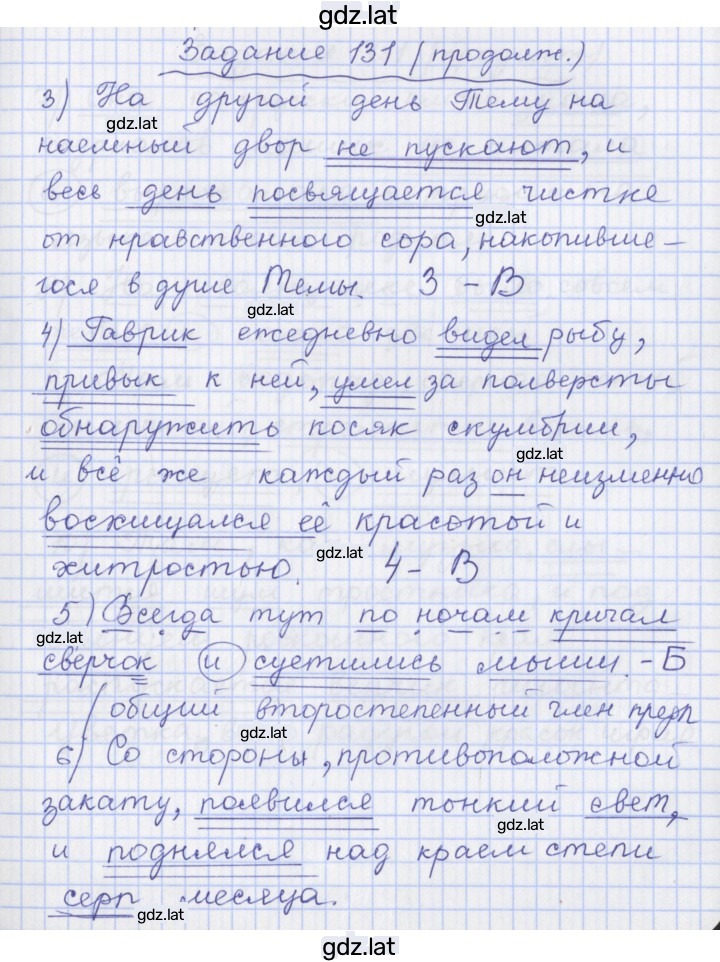 gdz.lat
Задание 131 (продолж.)
3) На другой день Тему на
gdz.lat
наемный двор не пускают, и
весь день посвящается чистке
gdz.lat
от нравственного сора, накопивше-
гося в душе Темы. 3 - В
gdz.lat
4) Гаврик ежедневно видел рыбу,
привык к ней, умел за полверсты
обнаружить косяк скумбрии,
gdz.lat
и всё же каждый раз он неизменно
восхищался её красотой и
gdz.lat
хитростью. 4 - В
5) Всегда тут по ночам кричал
gdz.lat
сверчок и суетились мыши. - Б
общий второстепенный член предл
gdz.lat
6) Со стороны, противоположной
закату, появился тонкий свет,
gdz.lat
и поднялся над краем степи
серп месяца.
gdz.lat
gdz.lat